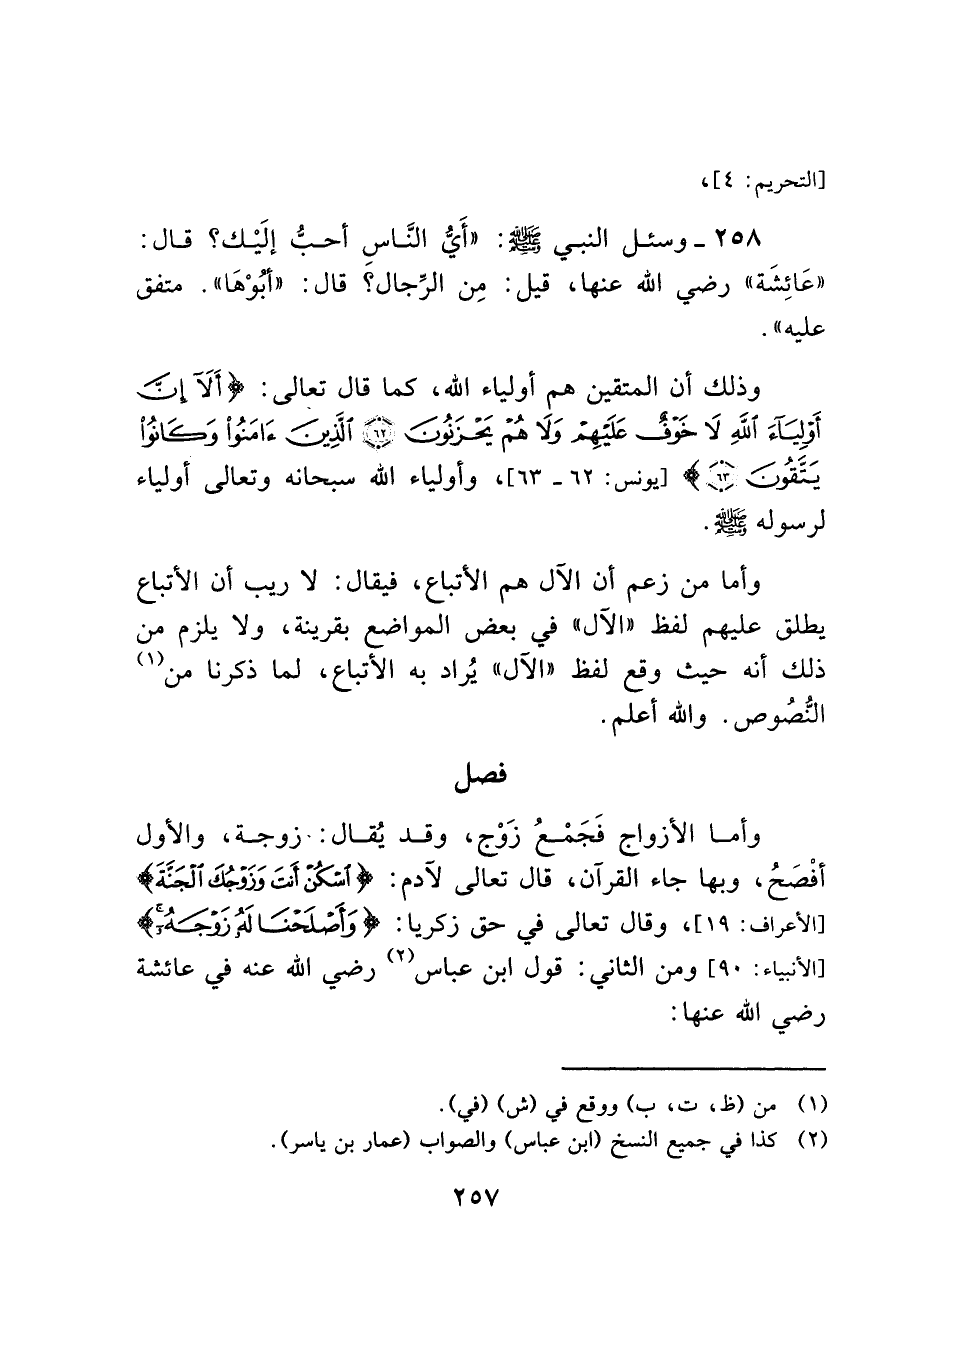 [التحريم: ٤]،
٢٥٨ ـ وسئل النبي ﷺ: «أَيُّ النَّاسِ أحبُّ إلَيْك؟ قال:
«عَائِشَة» رضي الله عنها، قيل: مِن الرِّجال؟ قال: «أَبُوْهَا». متفق
عليه».
وذلك أن المتقين هم أولياء الله، كما قال تعالى: ﴿أَلَآ إِنَّ
أَوْلِيَآءَ ٱللَّهِ لَا خَوْفٌ عَلَيْهِمْ وَلَا هُمْ يَحْزَنُونَ ۝٦٢ ٱلَّذِينَ ءَامَنُواْ وَكَانُواْ
يَتَّقُونَ ۝٦٣﴾ [يونس: ٦٢ ـ ٦٣]، وأولياء الله سبحانه وتعالى أولياء
لرسوله ﷺ.
وأما من زعم أن الآل هم الأتباع، فيقال: لا ريب أن الأتباع
يطلق عليهم لفظ «الآل» في بعض المواضع بقرينة، ولا يلزم من
ذلك أنه حيث وقع لفظ «الآل» يُراد به الأتباع، لما ذكرنا من(١)
النُّصُوص. والله أعلم.
فصل
وأما الأزواج فَجَمْعُ زَوْج، وقد يُقال: زوجة، والأول
أفْصَحُ، وبها جاء القرآن، قال تعالى لآدم: ﴿ٱسْكُنْ أَنتَ وَزَوْجُكَ ٱلْجَنَّةَ﴾
[الأعراف: ١٩]، وقال تعالى في حق زكريا: ﴿وَأَصْلَحْنَا لَهُۥ زَوْجَهُۥٓ﴾
[الأنبياء: ٩٠] ومن الثاني: قول ابن عباس(٢) رضي الله عنه في عائشة
رضي الله عنها:
(١) من (ظ، ت، ب) ووقع في (ش) (في).
(٢) كذا في جميع النسخ (ابن عباس) والصواب (عمار بن ياسر).
٢٥٧